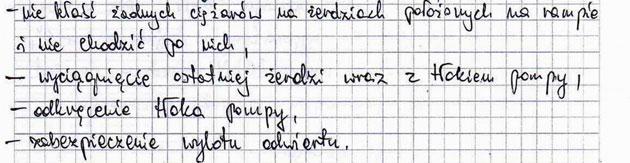 -nie kłaść żadnych ciężarów na żerdziach położonych na rampie
i nie chodzić po nich,
- wyciągnięcie ostatniej żerdzi wraz z tłokiem pompy,
- odkręcenie tłoka pompy,
- zabezpieczenie wylotu odwiertu.